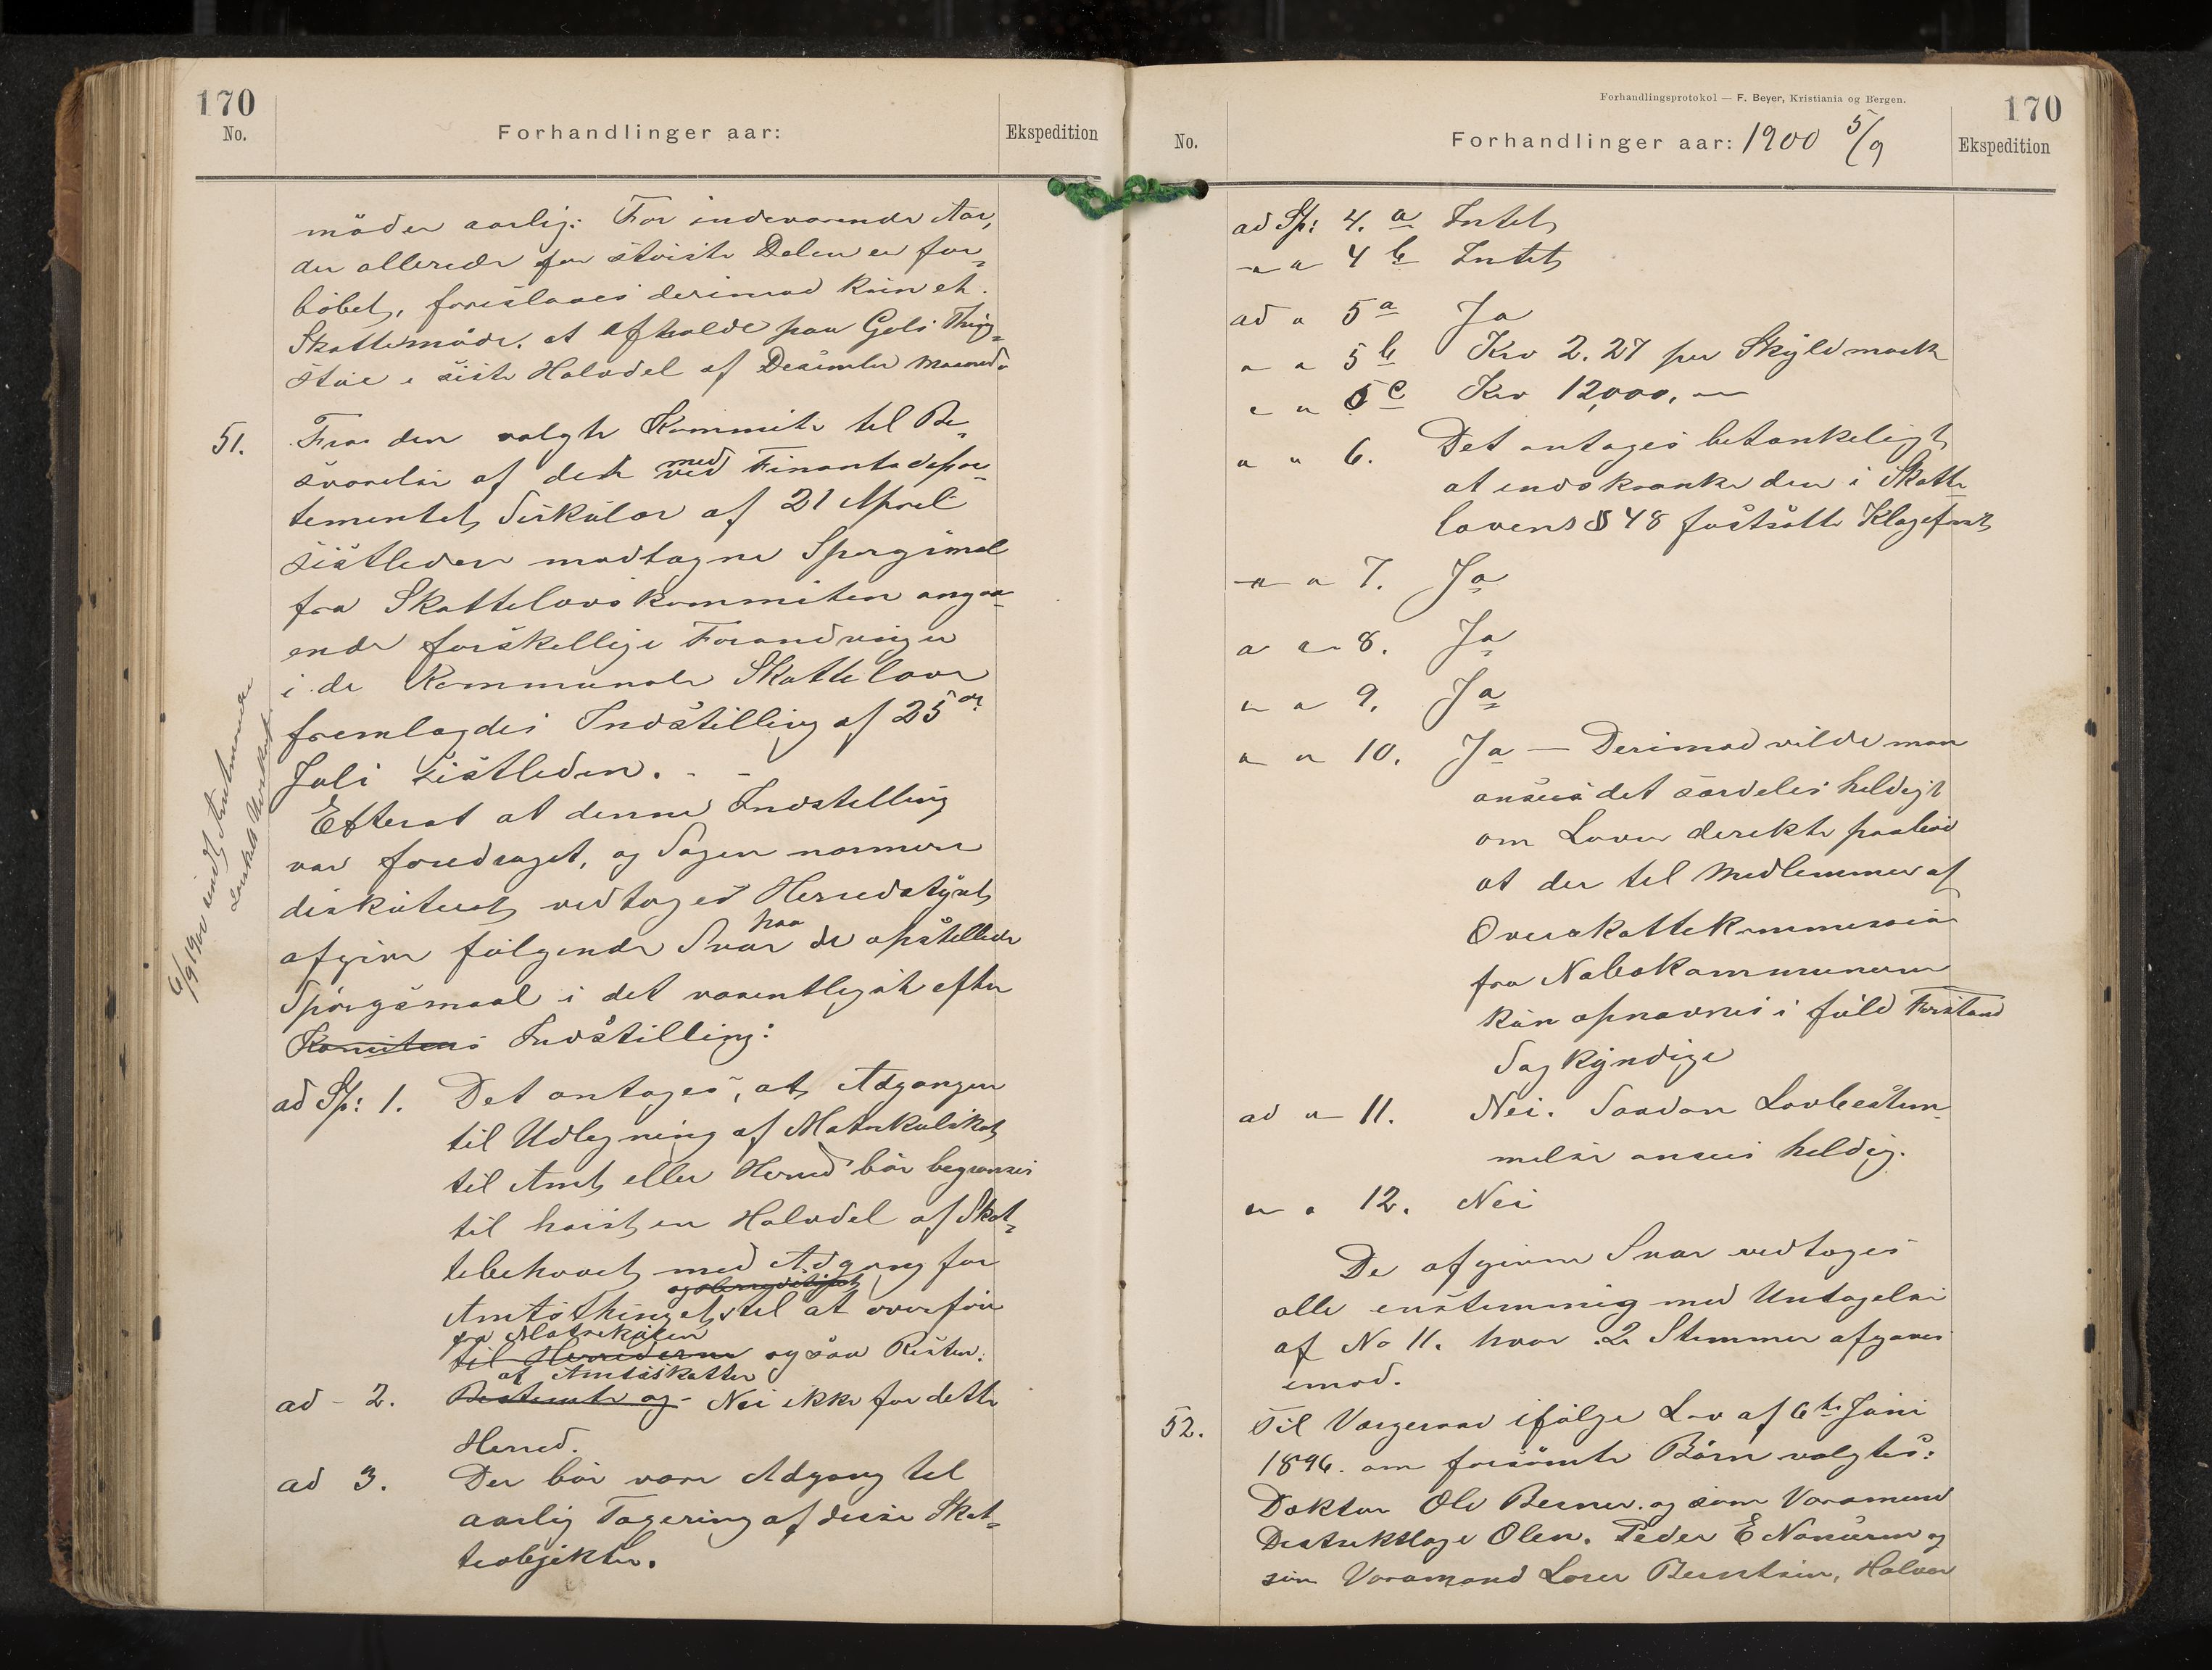 170
No.
Forhandlinger aar:
Ekspedition
møder aarlig. For indeværende Aar,
der allerede for største Delen er for-
løbet, foreslaaes derimod kun et
Skattemøde at afholde paa Gols Thing-
støe i siste Halvdel af Desember Maaned.
51.
Fra den valgte Kommite til Be-
svarelse af det med Finantsdepar-
tementets Sirkulær af 21 April
sistleden modtagne Spørgsmal
fra Skattelovskommiten angaa-
ende forskellige Forandringer
i de Kommunale Skattelove
fremlagdes Indstilling af 25de
Juli sistleden.
Efterat at denne Indstilling
var foredraget, og Sagen nærmere
diskuteret vedtoges Herredstyret
afgive følgende Svar paa de opstillede
Spørgsmaal i det væsentligste efter
Komiteens Indstilling:
6/9 1900 sendt Amtmanden
særskilt Udskrift
ad Sp: 1. Det antages, at Adgangen
til Udlegning af Matrikulskat
til Amt eller Herred bør begrænses
til høist en Halvdel af Skat-
tebehovet med Adgang for
og Herredstyret
Amtsthinget til at overføre
fra Matrikulen
til Herrederne ogsaa Resten.
af Amtsskatten
ad - 2. Bestemte og - Nei ikke for dette
Herred.
ad 3. Der bør være Adgang til
aarlig Taxering af disse Skat-
teobjekter.
Forhandlingsprotokol — F. Beyer, Kristiania og Bergen.
170
No.
Forhandlinger aar: 1900 5/9
Ekspedition
ad Sp: 4. a Intet
" " 4 b Intet
ad " 5 a Ja
" " 5 b Kr 2.27 per Skyldmark
" " 5 c Kr 12,000, —
" " 6. Det antages betænkeligt
at indskrænke den i Skatte
lovens § 48 fastsatte Klagefrist
" " 7. Ja
" " 8. Ja
" " 9. Ja
" " 10. Ja — Derimod vilde man
ansees det særdeles heldigt
om Loven direkte paabød
at der til Medlemmer af
Overskattekommission
fra Nabokommunerne
kun opnævnes i fuld Forstand
Sagkyndige
ad " 11. Nei. Saadan Lovbestem-
melse ansees heldig.
" " 12. Nei
De afgivne Svar vedtoges
alle enstemmig med Untagelse
af No 11. hvor 2 Stemmer afgaves
imod.
52.
Til Værgeraad ifølge Lov af 6te Juni
1896. om forsømte Børn valgtes:
Doktor Ole Berner. og som Varamand
Distriktlæge Olsen. Peder E Narum og
som Varamand Lars Berntsen, Halvor